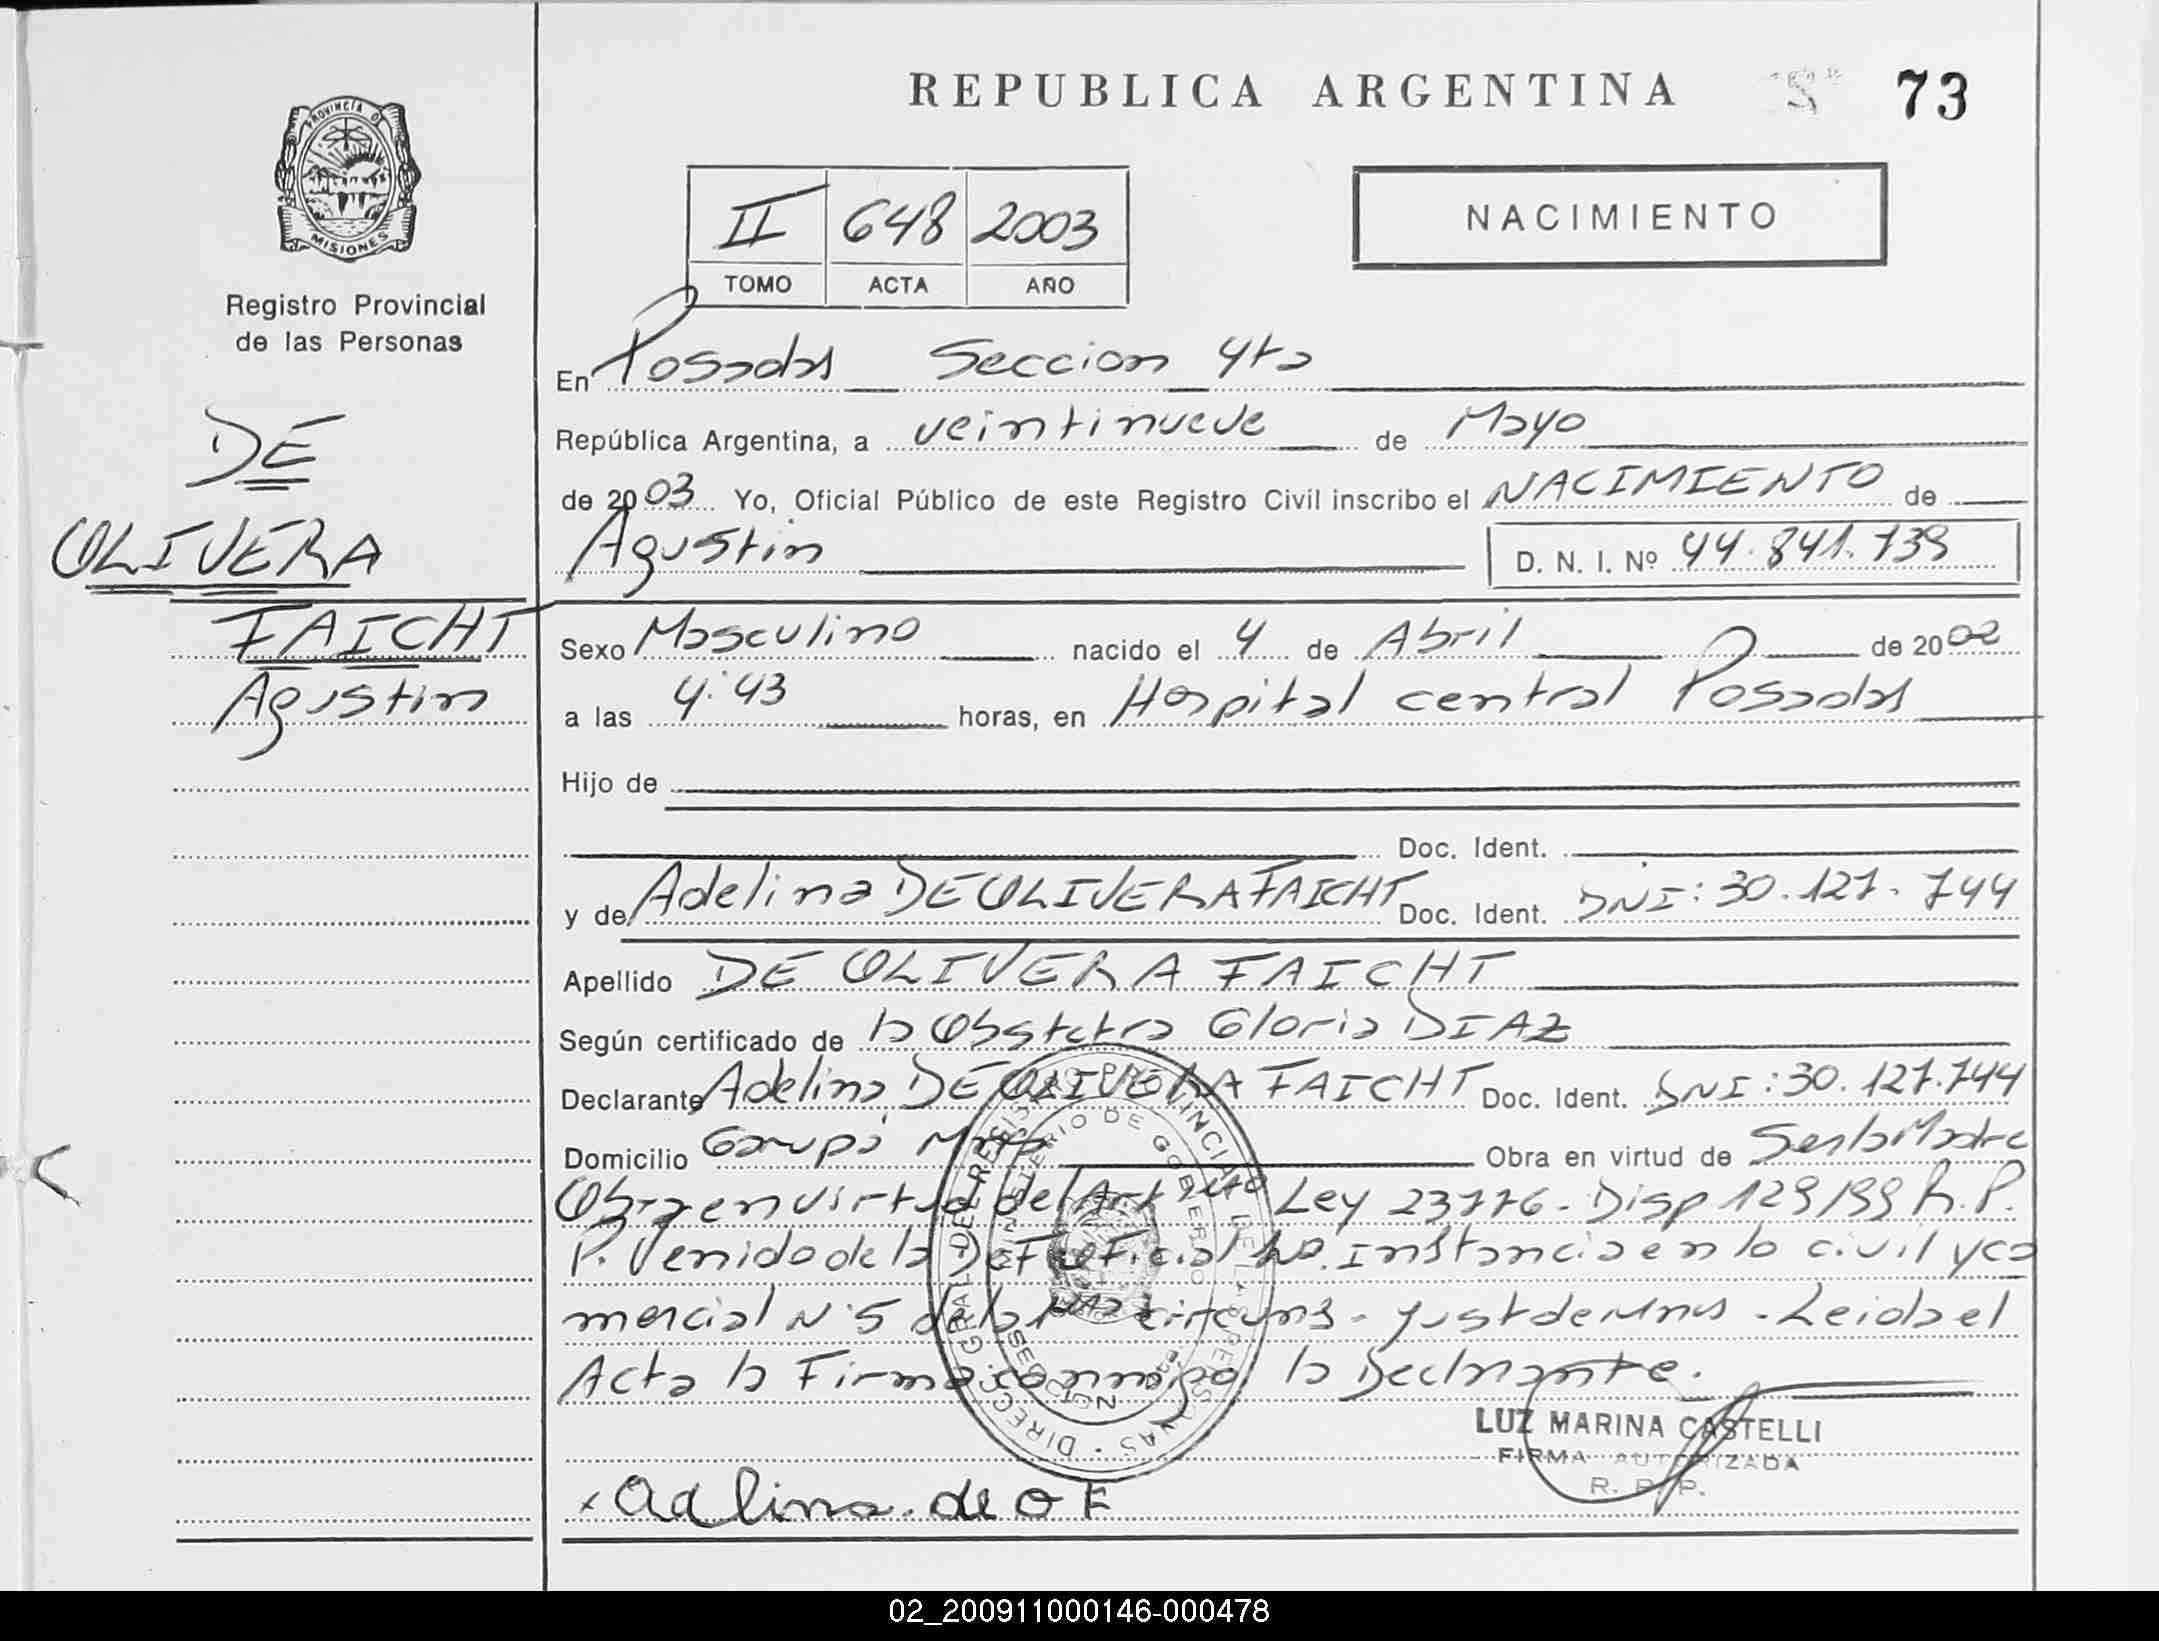 REPUBLICA ARGENTINA 73
PROVINCIA DE
MISIONES
Registro Provincial
de las Personas
II 648 2003
TOMO ACTA AÑO
NACIMIENTO
DE
OLIVERA
FAICHT
Agustin
En Posadas Seccion 4ta
República Argentina, a veintinueve de Mayo
de 2003 Yo, Oficial Público de este Registro Civil inscribo el NACIMIENTO de
Agustin D. N. I. Nº 44.841.739
Sexo Masculino nacido el 4 de Abril de 2002
a las 4:43 horas, en Hospital central Posadas
Hijo de
Doc. Ident.
y de Adelina DE OLIVERA FAICHT Doc. Ident. DNI: 30.127.744
Apellido DE OLIVERA FAICHT
Según certificado de la Obstetra Gloria DIAZ
Declarante Adelina DE OLIVERA FAICHT Doc. Ident. DNI: 30.127.744
Domicilio Garupá Mnes Obra en virtud de Ser la Madre
Obra en virtud del Art Ley 23776 - Disp 129/99 R.P.
P. Venido de la Def Oficial Instancia en lo civil y co
mercial N 5 de la circuns - Just de Mnes - Leida el
Acta la Firma conmigo la Declarante.
DIRECC. GRAL. DEL REGISTRO PROVINCIAL DE LAS PERSONAS
MINISTERIO DE GOBIERNO
SECCION 4ta.
LUZ MARINA CASTELLI
FIRMA AUTORIZADA
R. P. P.
x adelina. de O F
02_200911000146-000478